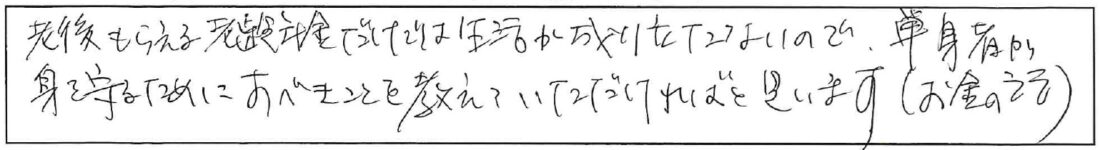 老後もらえる老齢年金だけでは生活が成りたたないので、単身者が
身を守るためにすべきことを教えていただければと思います(お金の話)